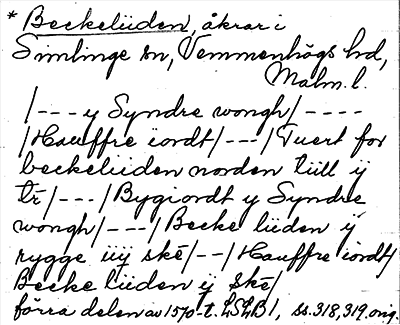 * Beckelüden, åkrar i
Simlinge sn, Vemmenhögs hd,
Malm. l.
/--- y Syndre wongh/----
/Hauffre iordt/---/Tuert for
beckelüden norden tüll ÿ
tr/---/Bygiordt y Syndre
wongh/---/Becke lüden ÿ
rygge üÿ ske/--/Hauffre iordt/
Becke lüden ÿ ske/
förra delen av 1570-t. LSLB 1, ss. 318, 319. orig.